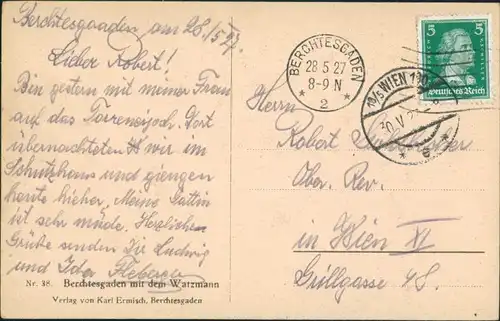 Berchtesgaden am 28/5 27.
Lieber Robert!
Bin gestern mit meiner Frau
auf das Torrenerjoch. Dort
übernachteten wir im
Schutzhaus und giengen
heute hieher, Meine Gattin
ist sehr müde. Herzlichen
Grüße senden Dir Ludwig
und Ida
Nr. 38. Berchtesgaden mit dem Watzmann
Verlag von Karl Ermisch, Berchtesgaden
BERCHTESGADEN
28 5 27
8-9 N
* 2 *
5 5
Deutsches Reich
WIEN
* e *
Herrn
Robert
Ober. Rev.
in Wien XI
Grillgasse